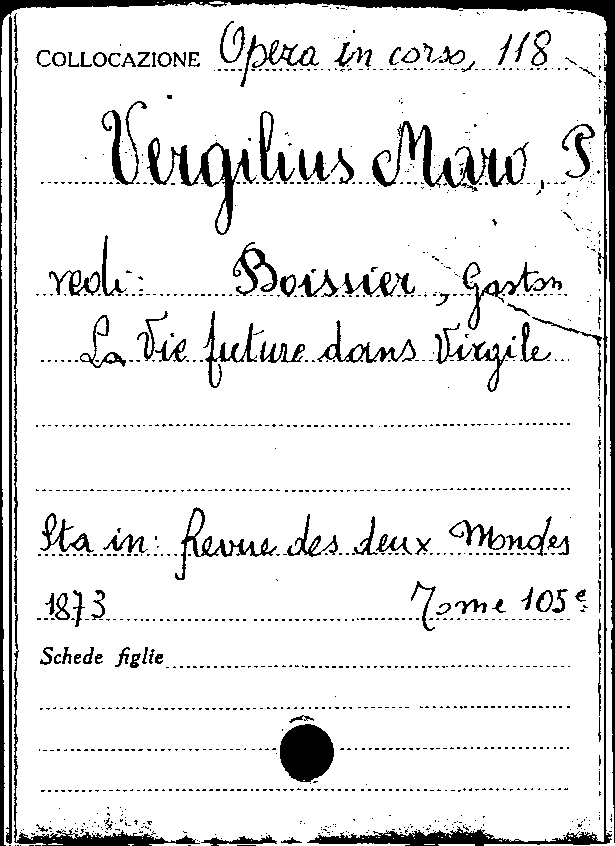 COLLOCAZIONE Opera in corso, 118
Vergilius Maro, P.
vedi: Boissier, Gaston
La Vie future dans Virgile
Sta in: Revue des deux Mondes
1873 Tome 105e
Schede figlie